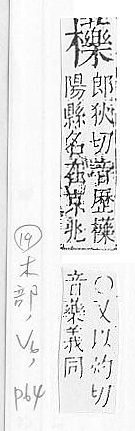 櫟
郎狄切音歷櫟
陽縣名在京兆
〇又以灼切
音藥義同
⑲木部, V6, p64